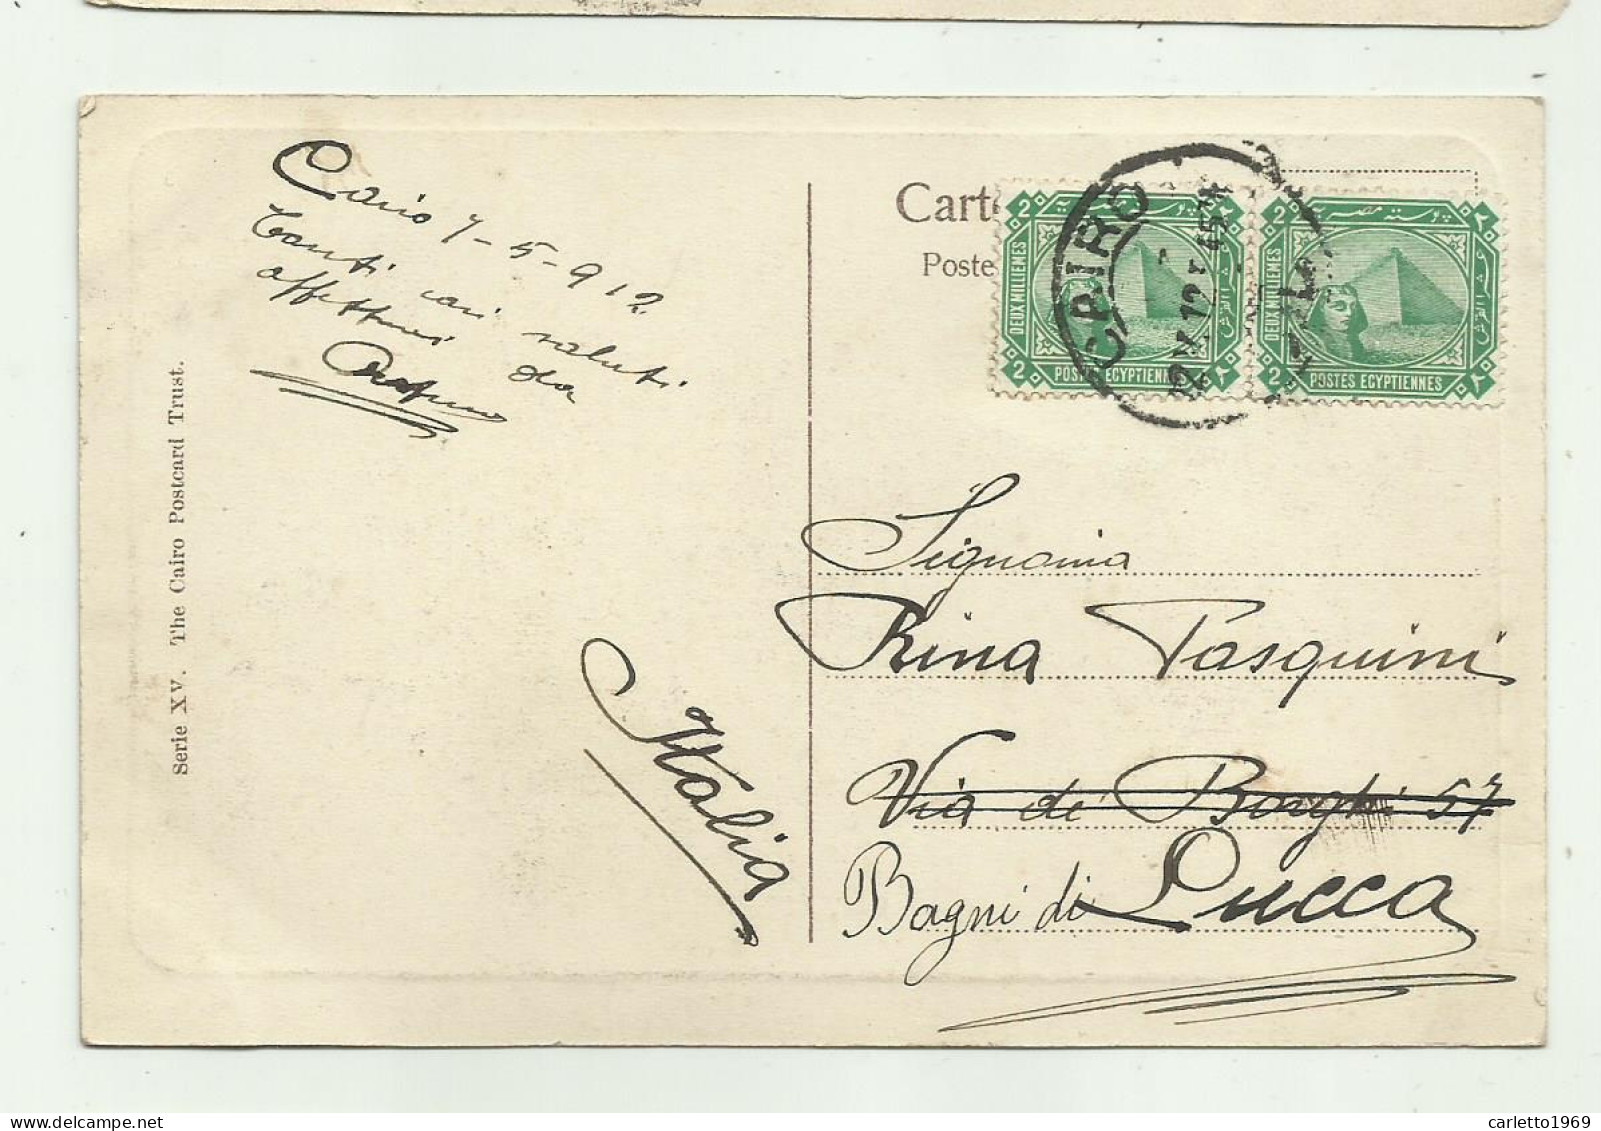 Cairo 7-5-912
Tanti cari saluti
affettuosi da
Serie XV. The Cairo Postcard Trust.
Cart
Poste
2 بوستة مصرية ٢
DEUX MILLIEMES
2 POSTES EGYPTIENNES ٢
2 بوستة مصرية ٢
DEUX MILLIEMES
2 POSTES EGYPTIENNES ٢
CAIRO
Signorina
Rina Pasquini
Via de' Borghi 57
Bagni di Lucca
Italia
carletto1969